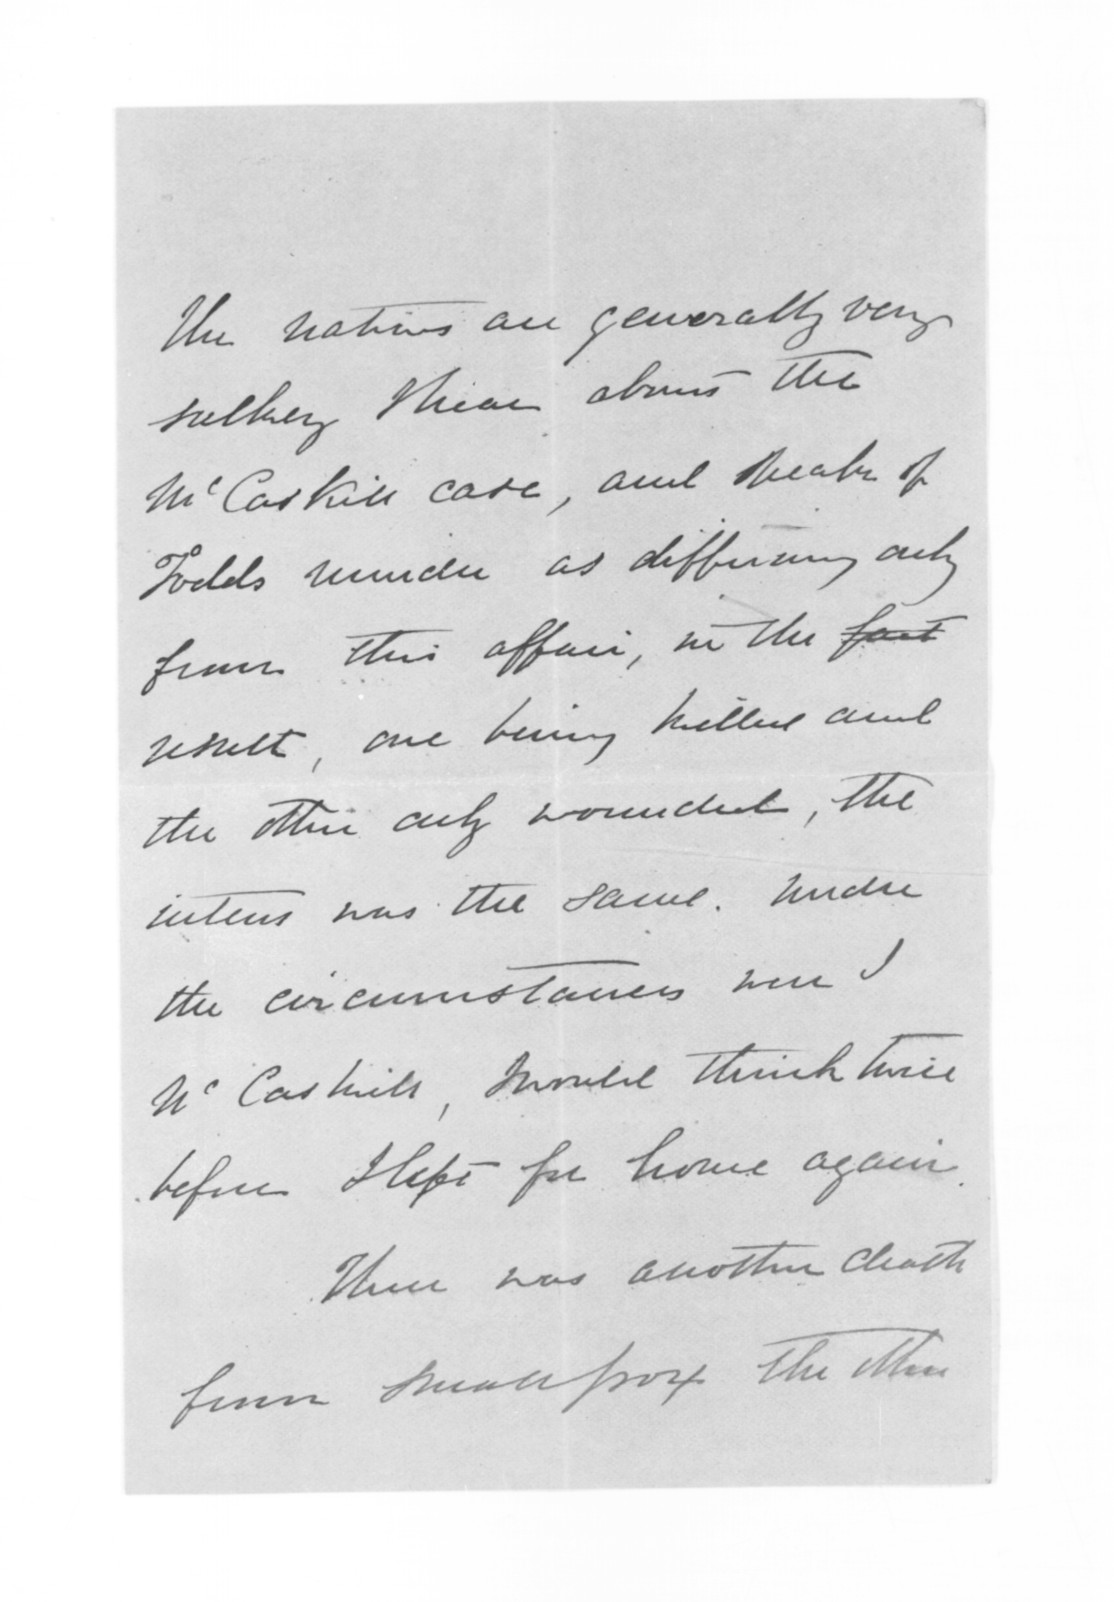 The natives are generally very
sulkey I hear about the
McCaskill case, and speak of
Todds murder as differing only
from this affair, in the fact
result, one being killed and
the other only wounded, the
intent was the same. Under
the circumstances were I
McCaskill, I would think twice
before I left for home again.
There was another death
from small pox the other